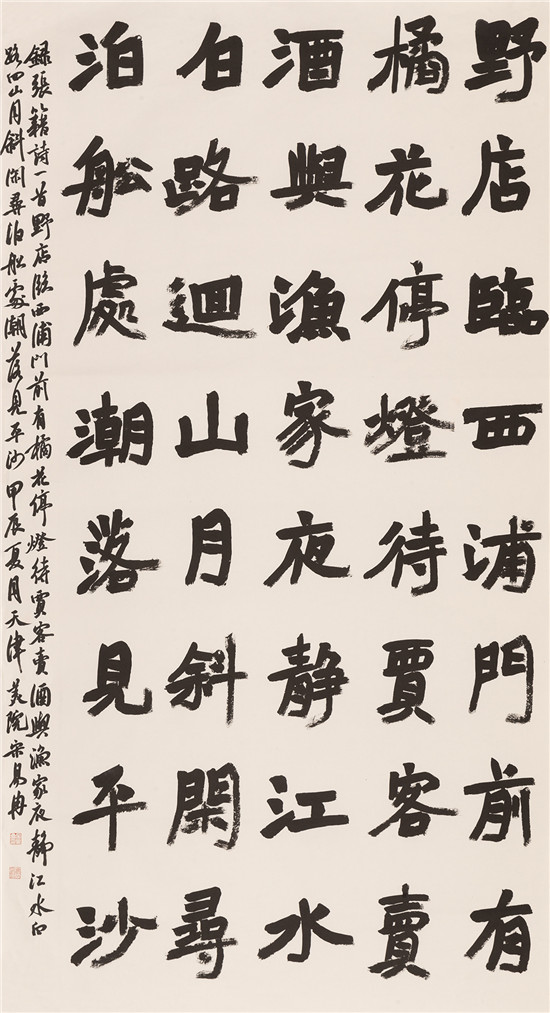 野店臨西浦門前有
橘花停燈待賈客賣
酒與漁家夜静江水
白路迴山月斜閑尋
泊船處潮落見平沙
録張籍詩一首野店臨西浦門前有橘花停燈待賈客賣酒與漁家夜静江水白
路回山月斜閑尋泊船處潮落見平沙甲辰夏月天津美院宗易冉